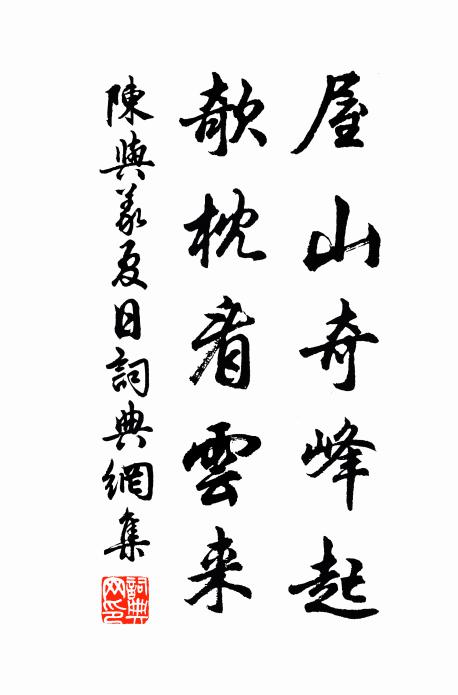 屋山奇峰起
欹枕看雲来
陳與義夏日詞典網集
詞典網印